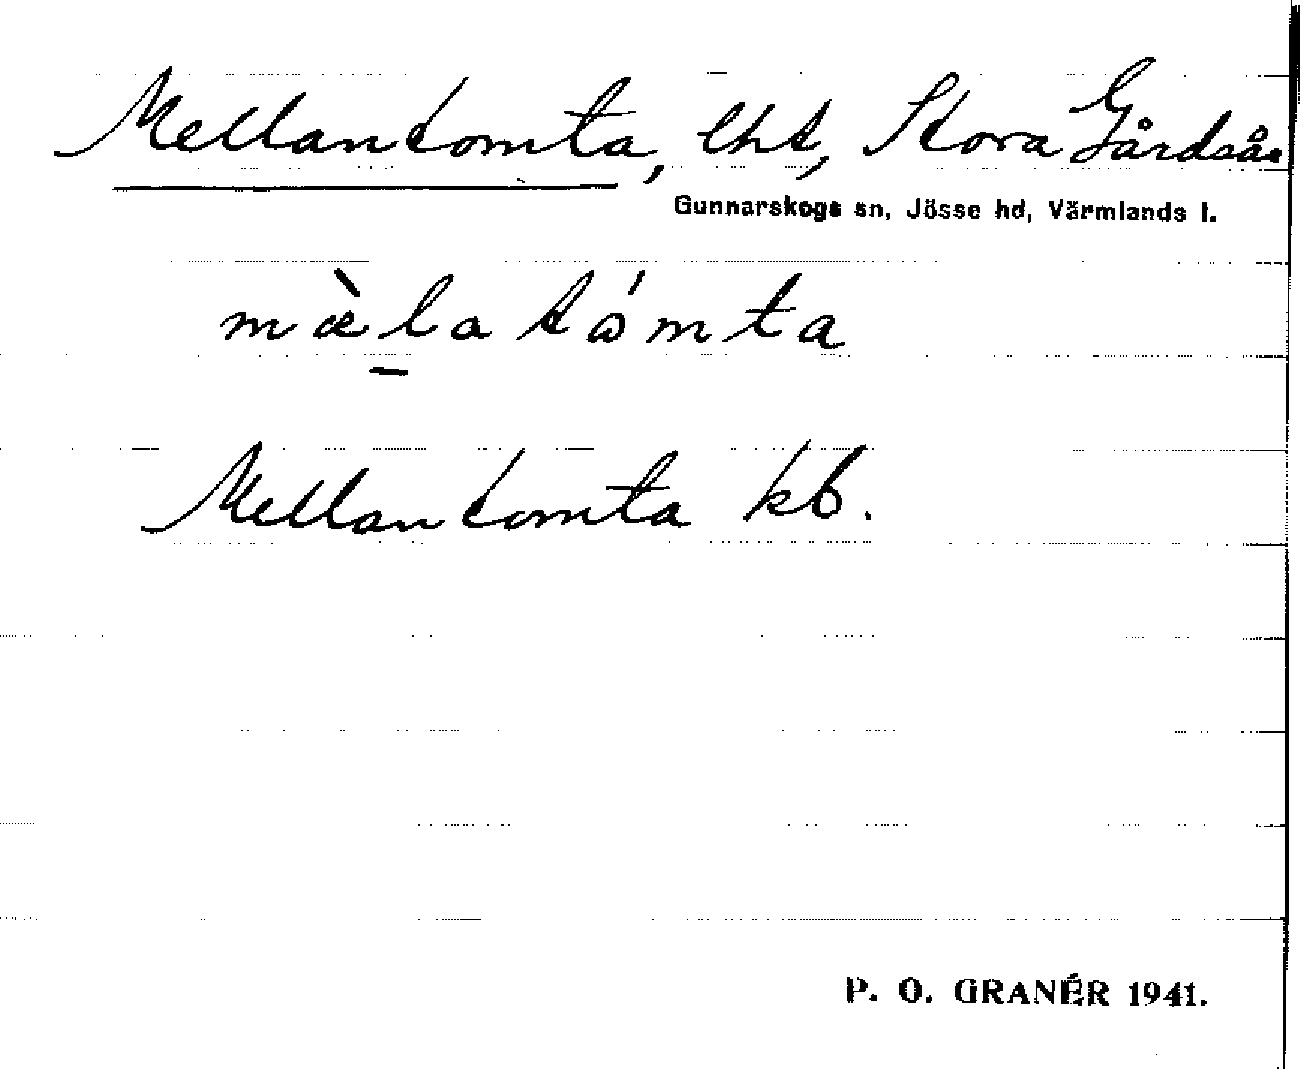 Mellantomta, lht, Stora Gårdsås
Gunnarskogs sn, Jösse hd, Värmlands l.
mæ̀la tómta
Mellantomta kb.
P. O. GRANÉR 1941.